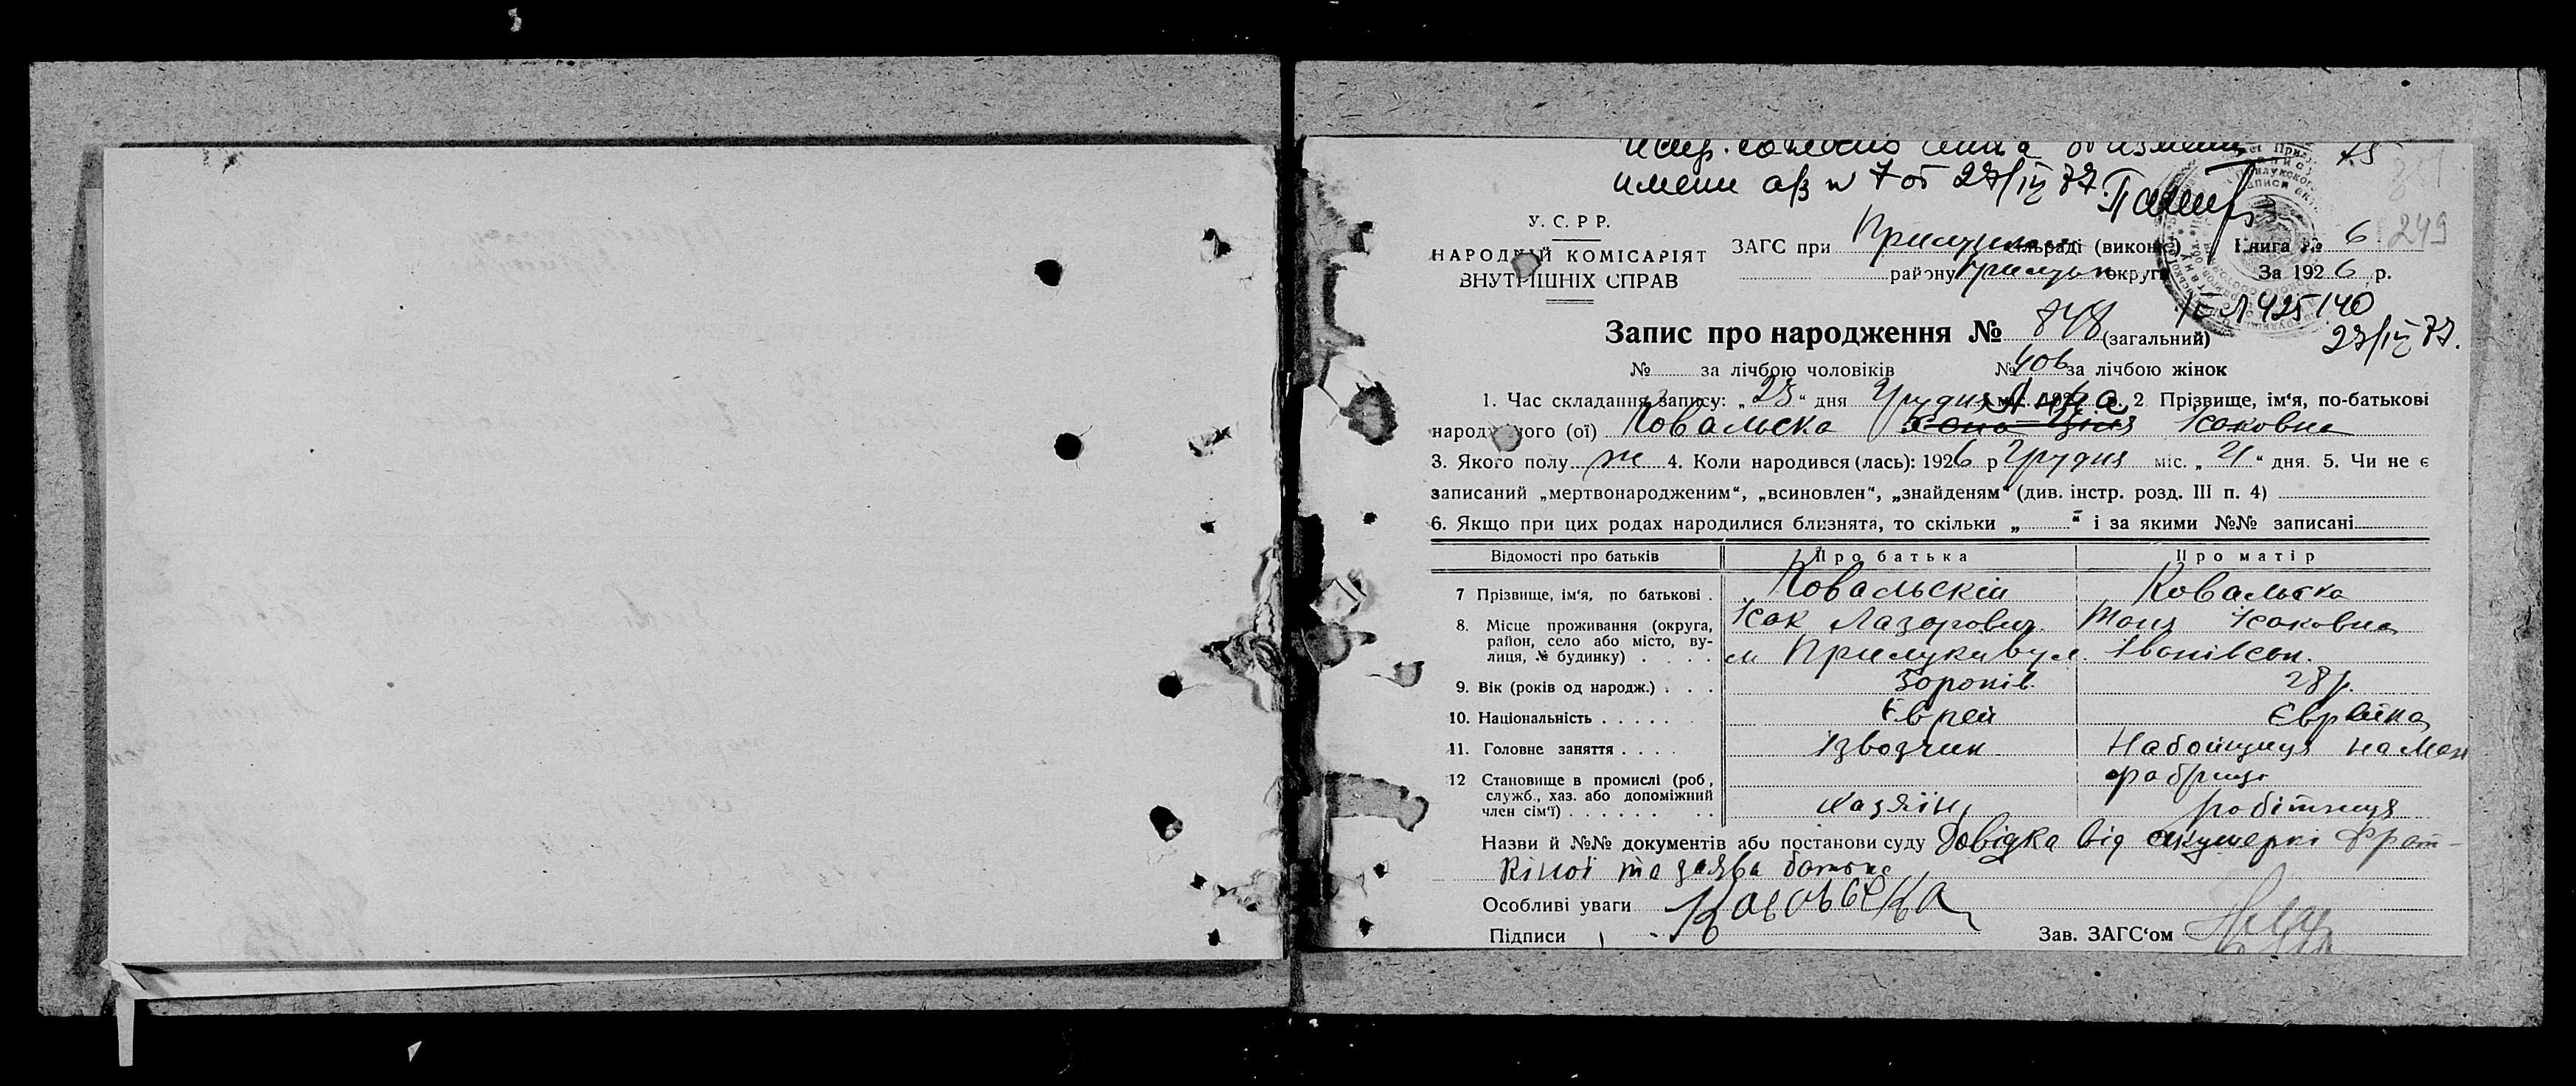 имени а/з N 7 от 27/IV 77.
У. С. Р Р.
НАРОДНИЙ КОМІСАРІЯТ
ВНУТРІШНІХ СПРАВ
ЗАГС при сільраді (виконк.) Книга № 6 249
району округи За 1926 р.
425140
27/IV 77.
Запис про народження № 848 (загальний)
№ за лічбою чоловіків № 406 за лічбою жінок
1. Час складання запису: „ “ дня Грудня міс. 192 р. 2 Прізвище, ім‘я, по-батькові
Анна
народженого (ої) Ковальска Ісаковна
3. Якого полу ж 4. Коли народився (лась): 1926 р Грудня міс. „ 21 “ дня. 5. Чи не є
записаний „мертвонародженим“, „всиновлен“, „знайденям“ (див. інстр. розд. III п. 4)
6. Якщо при цих родах народилися близнята, то скільки „ “ і за якими №№ записані
Відомості про батьків Про батька Про матір
7 Прізвище, ім‘я, по батькові . Ковальскій Ковальска
Ісак Лазарович Ісаковна
8. Місце проживання (округа, район, село або місто, вулиця, № будинку) . . . . м Прилуки вул. Іванівськ.
9. Вік (років од народж.) . . . 30 років 28 р.
10. Національність . . . . . Єврей Єврейка
11. Головне заняття . . . . Ізвозчик Набойщиця на
фабриці
12 Становище в промислі (роб, служб., хаз. або допоміжний член сім‘ї) . . . . . . . . хазяїн робітниця
Назви й №№ документів або постанови суду Довідка від акушеркі Фрат-
кіної та заява батька
Особливі уваги
Підписи Зав. ЗАГС‘ом